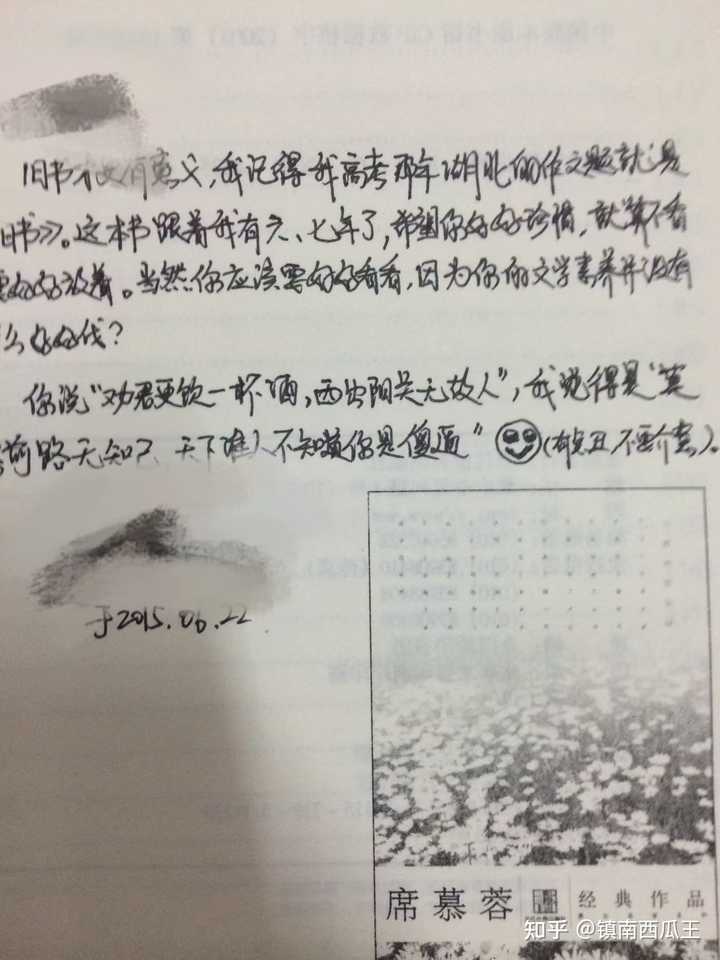 旧书有意义，我记得我高考那年湖北的作文题就是
旧书》。这本书跟着我有六、七年了，希望你好好珍惜，就算不看
要好好放着。当然你应该要好好看看，因为你的文学素养并没有
么好好伐？
你说“劝君更饮一杯酒，西出阳关无故人”，我觉得是“莫
前路无知己 天下谁人不知道你是傻逼”（有点丑 不要介意）。
于2015.06.22
席慕蓉 经典作品
知乎 @镇南西瓜王